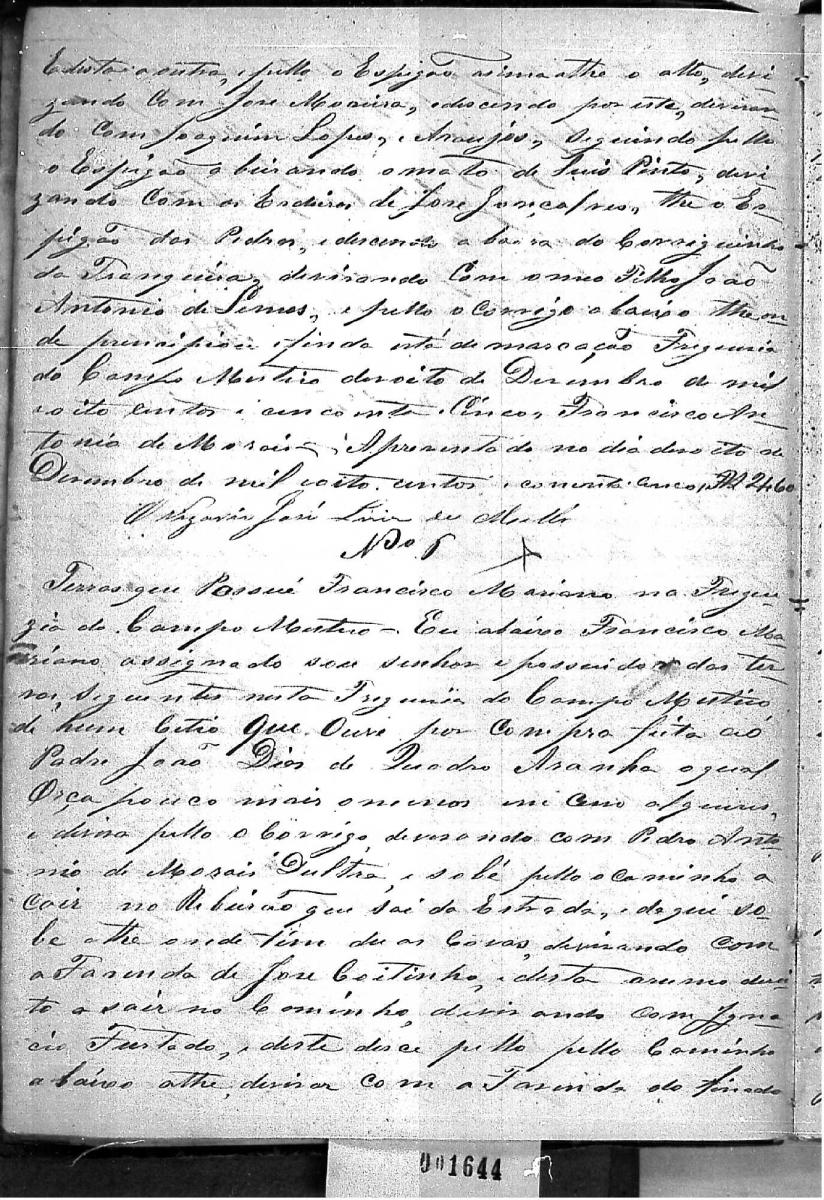 E desta a outra, e pello o Espigão asima athe o alto, devi-
zando Com Jose Moreira, e descendo por esta, deviran-
do Com Joaquim Lopes, e Araujos, seguindo pello
o Espigão abeirando o mato de Luis Pinto, devi-
zando Com os Erdeiros de Jose Gonçalves, the o Es-
pigão das Pedras, e descendo a beira do Corriguinho
da Tranqueira, devirando Com o meo Filho João
Antonio de Lemos, e pello o corrigo abaixo the on-
de principiou e finda está demarcação Freguezia
do Campo Mistico desoito de Dezembro de mil
oito centos e cincoenta e Cinco, Francisco An-
tonio de Morais — Apresentado no dia desoito de
Dezembro de mil oito centos e coenta cinco, R 2460
O Vigario José Luiz de Mello
Nº 6
Terras que Possué Francisco Mariano na Fregue-
zia do Campo Mistico — Eu abaixo Francisco Ma-
riano assignado sou senhor e possuidor das ter-
ras, seguintes nesta Freguezia do Campo Mistico,
de hum Citio que Ouve por compra feita aó
Padre João Dias de Quadro Aranha o qual
Orça pouco mais o menos em cem alqueires,
e devira pello o Corrigo, devirando com Pedro Anto-
nio de Morais Dultra, e sobé pello o caminho a
Cair no Ribeirão que sai da Estrada, e daqui so-
be athe onde tem duas Covas, devirando com
a Fazenda de Jose Coitinho, e desta a rumo direi-
to a sair no Caminho, devirando com Igna-
cio Furtado, e deste desce pello pello Caminho
abaixo athe, devirar com a Fazenda do finado
001644